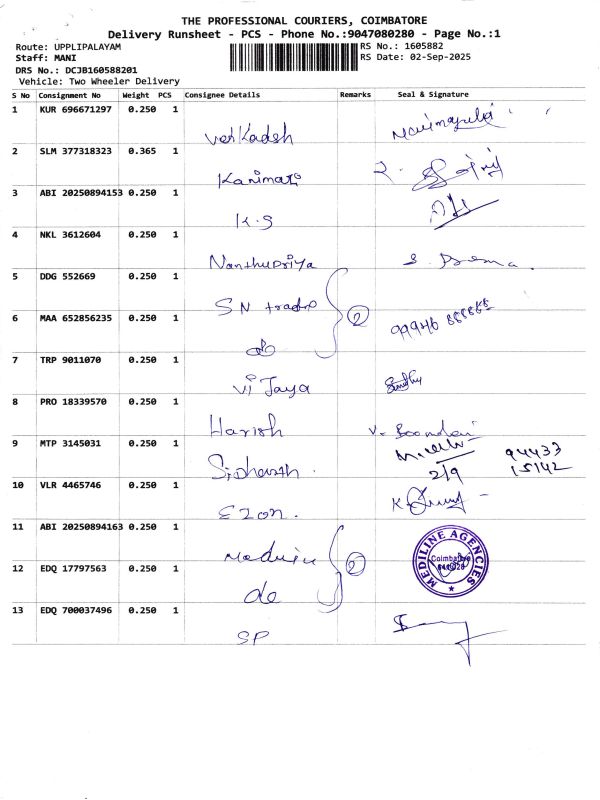 THE PROFESSIONAL COURIERS, COIMBATORE
Delivery Runsheet - PCS - Phone No.:9047080280 - Page No.:1
Route: UPPLIPALAYAM RS No.: 1605882
Staff: MANI RS Date: 02-Sep-2025
DRS No.: DCJB160588201
Vehicle: Two Wheeler Delivery
S No Consignment No Weight PCS Consignee Details Remarks Seal & Signature
1 KUR 696671297 0.250 1
Venkadesh
2 SLM 377318323 0.365 1
Karimari
3 ABI 20250894153 0.250 1
K.S
4 NKL 3612604 0.250 1
Nanthupriya
5 DDG 552669 0.250 1
SN trade 2
6 MAA 652856235 0.250 1
do 99946 888888
7 TRP 9011070 0.250 1
Vijaya
8 PRO 18339570 0.250 1
Harish
9 MTP 3145031 0.250 1
94433
Sidharth 2/9 15142
10 VLR 4465746 0.250 1
EZon.
11 ABI 20250894163 0.250 1
2
MEDILINE AGENCIES
Coimbatore
12 EDQ 17797563 0.250 1
do
13 EDQ 700037496 0.250 1
SP